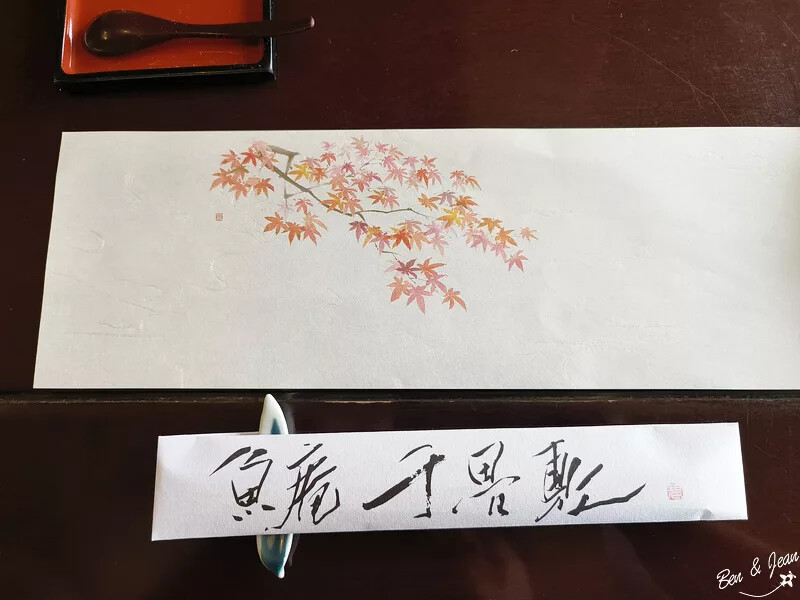 魚庵 千畳敷
Ben & Jean